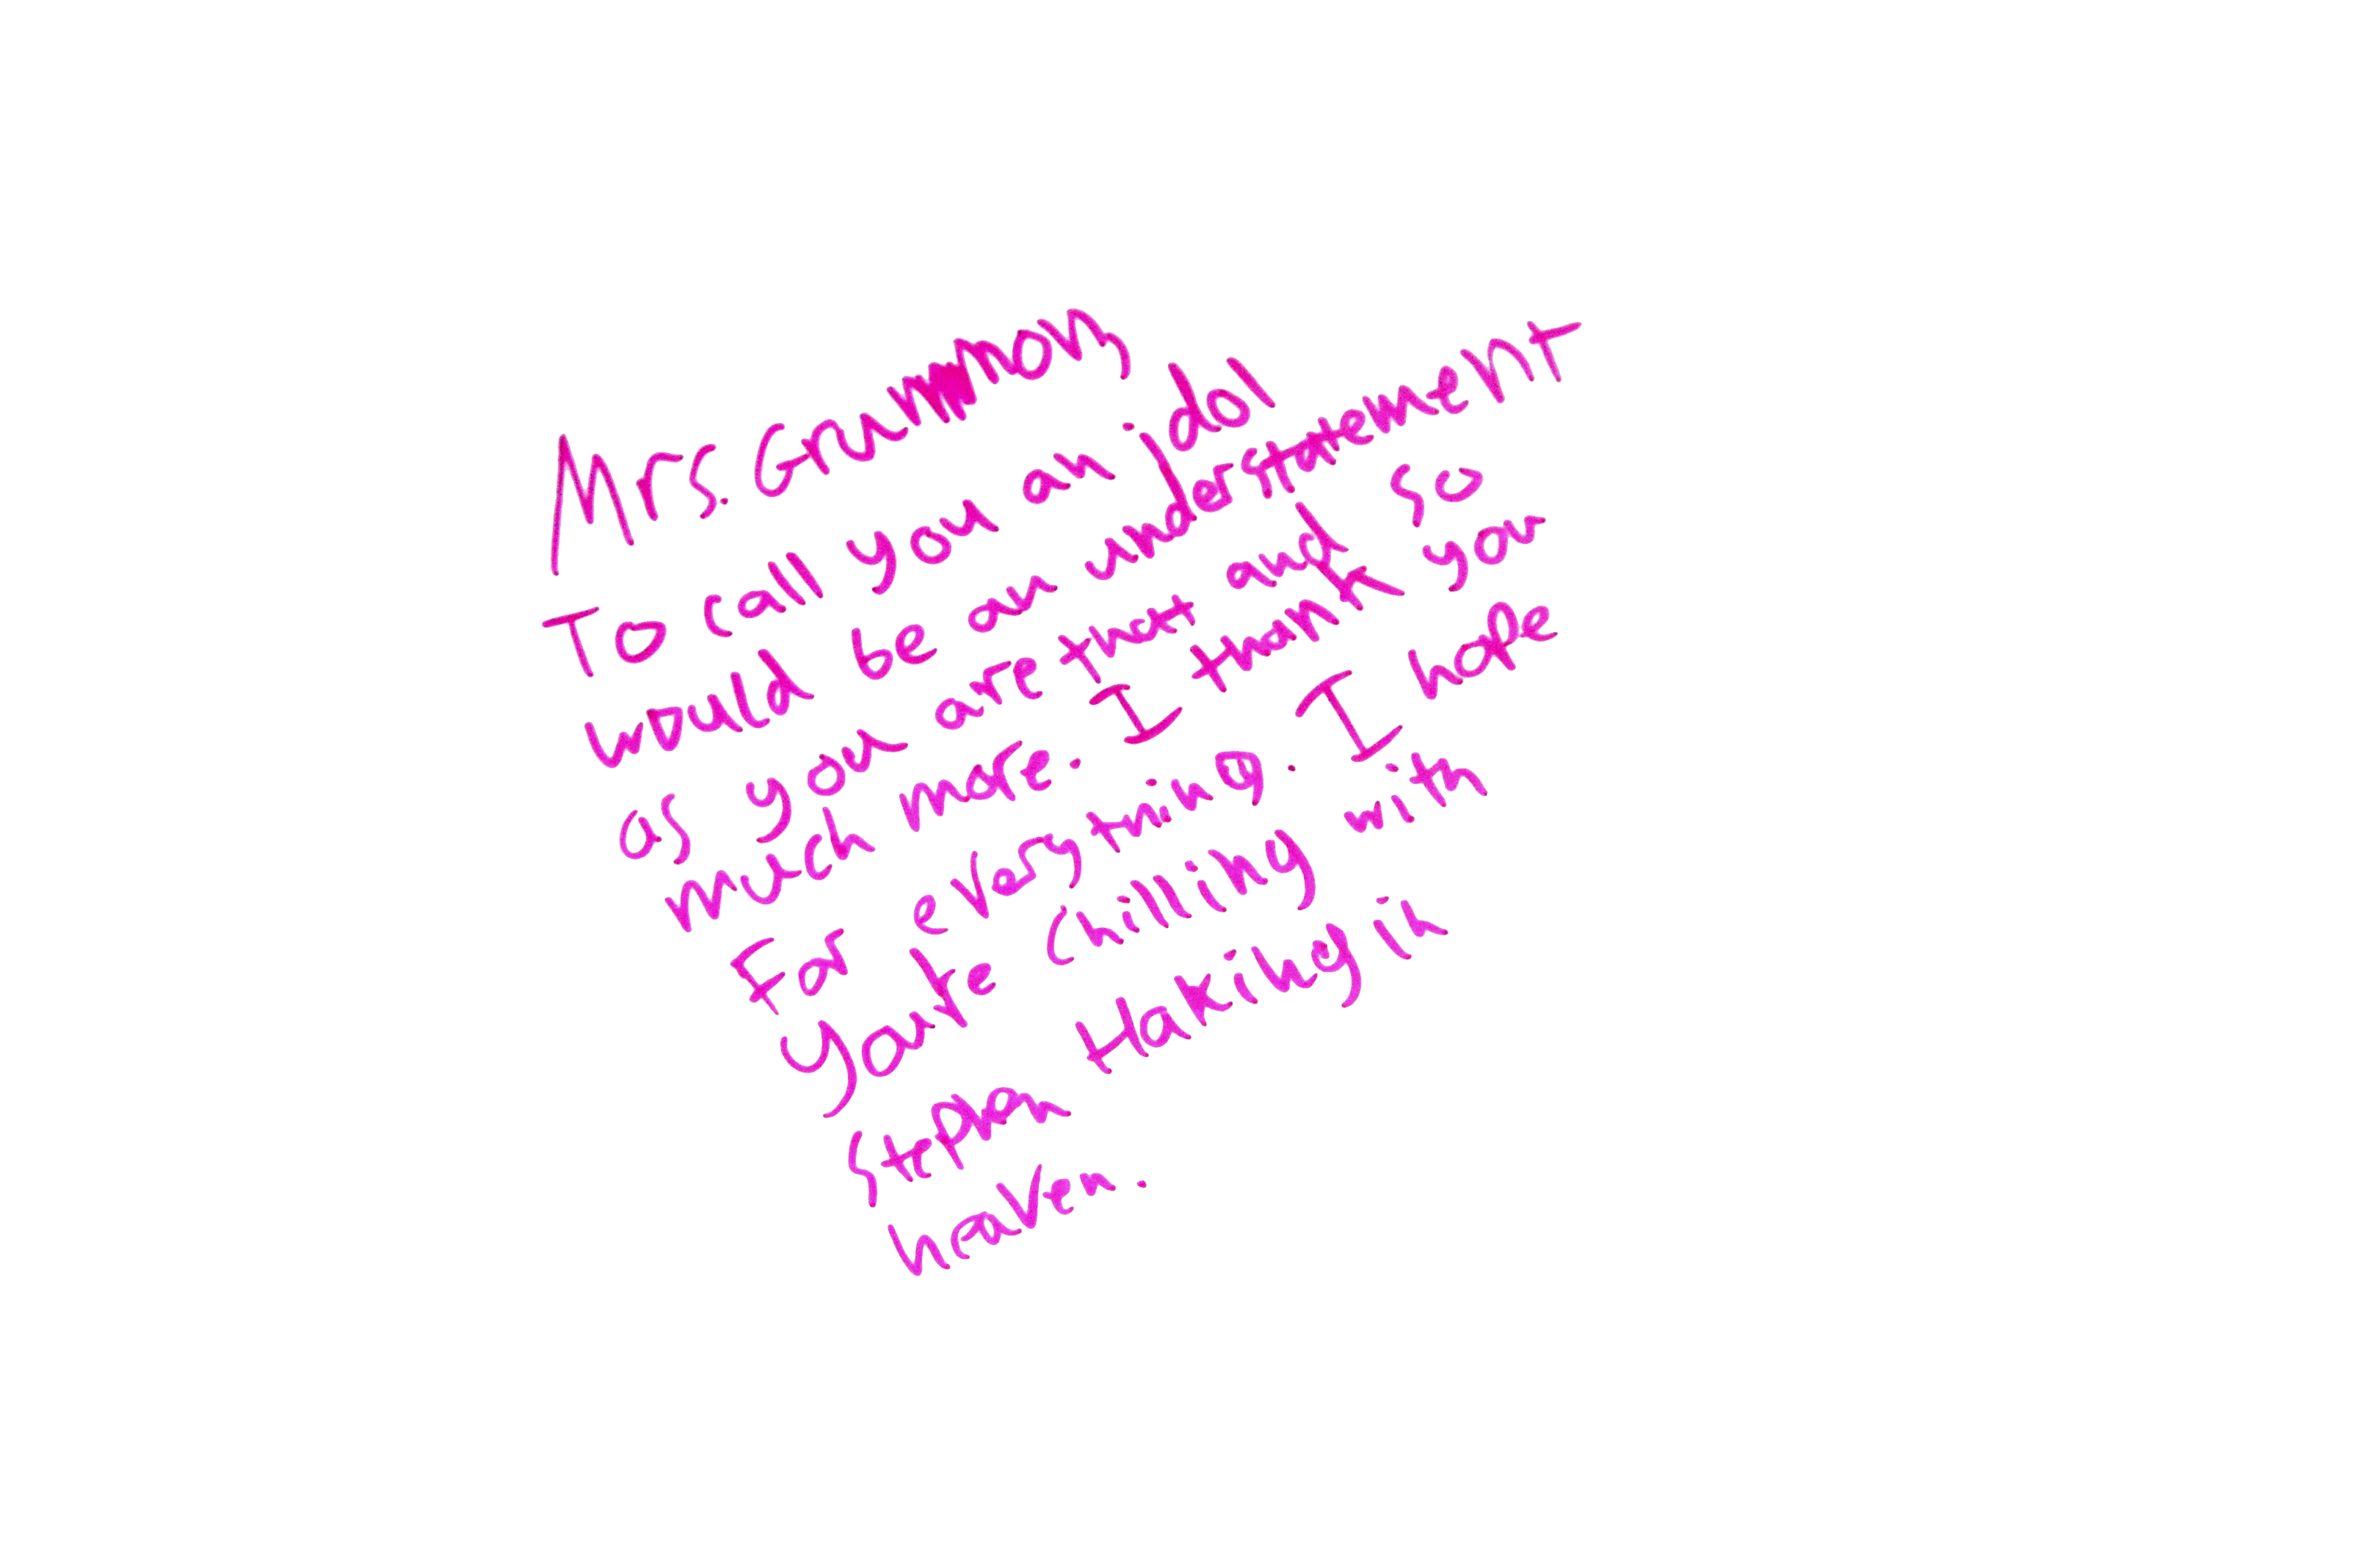 Mrs. Grammon,
To call you an idol
would be an understatement
as you are that and so
much more. I thank you
For everything. I hope
you're chilling with
Stephan Haking in
heaven.